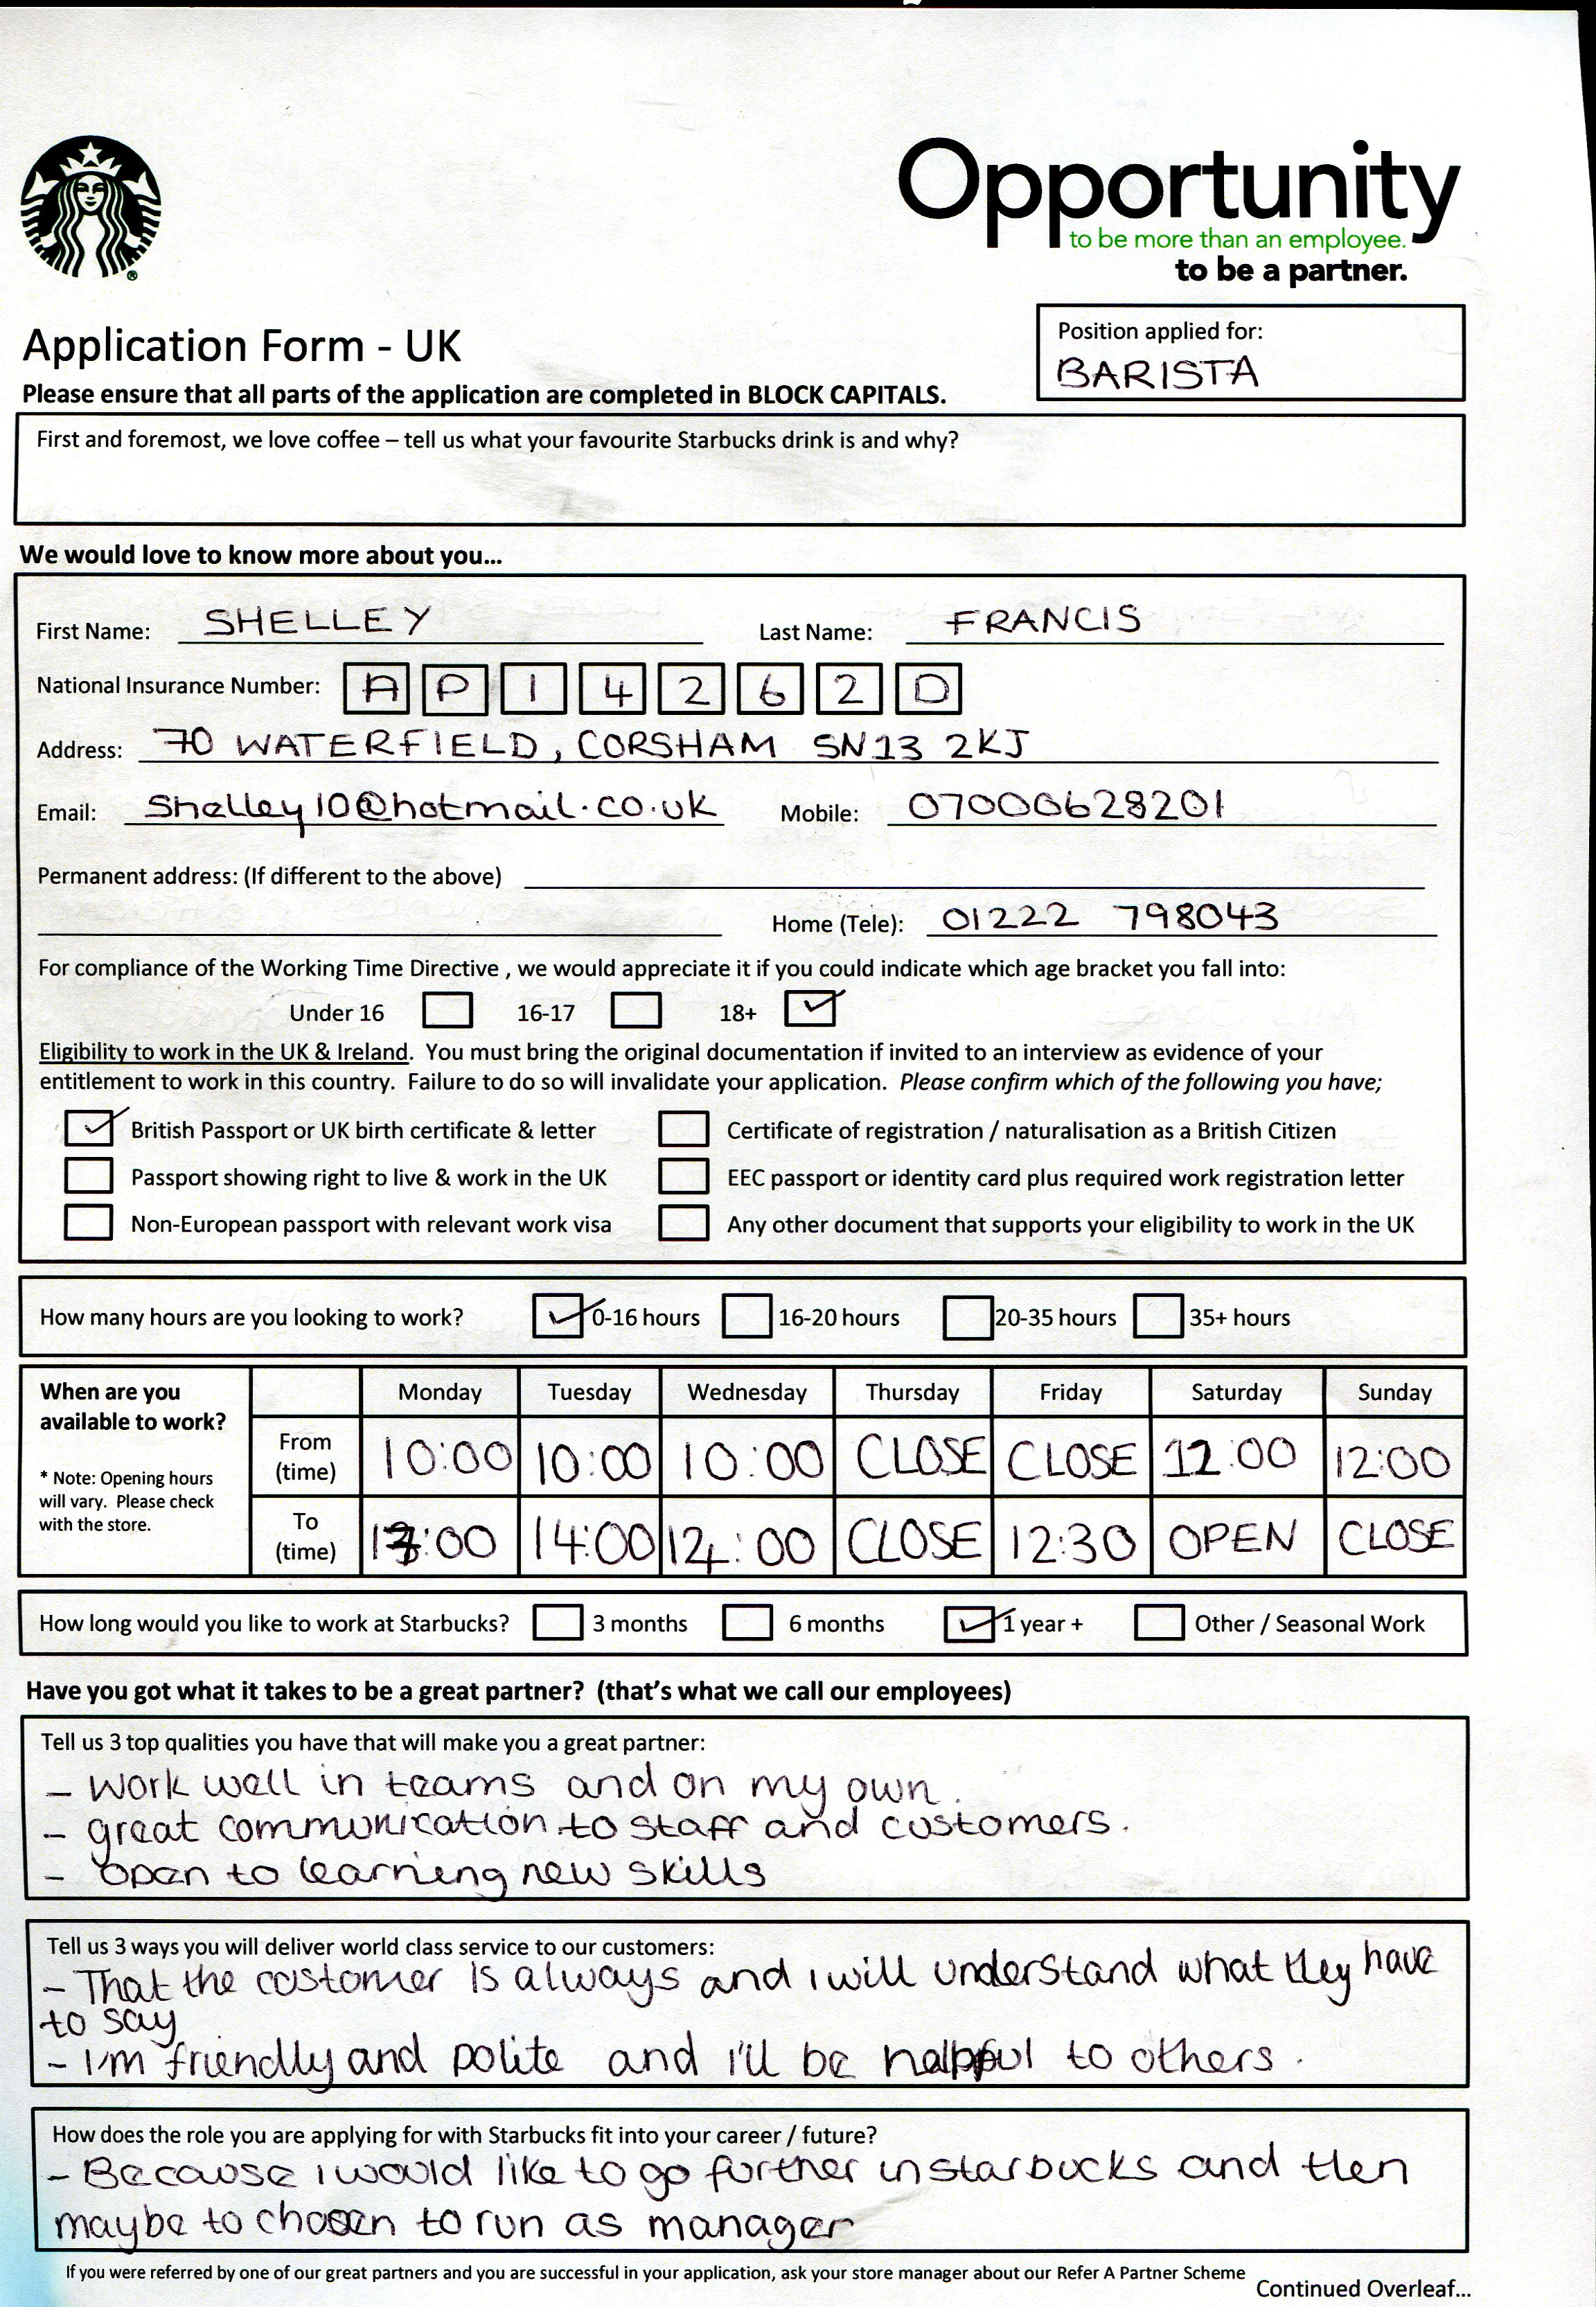 Opportunity
to be more than an employee.
to be a partner.
Application Form - UK
Position applied for:
BARISTA
Please ensure that all parts of the application are completed in BLOCK CAPITALS.
First and foremost, we love coffee – tell us what your favourite Starbucks drink is and why?
We would love to know more about you...
First Name: SHELLEY Last Name: FRANCIS
National Insurance Number: A P 1 4 2 6 2 D
Address: 70 WATERFIELD, CORSHAM SN13 2KJ
Email: Shelley10@hotmail.co.uk Mobile: 07000628201
Permanent address: (If different to the above)
Home (Tele): 01222 798043
For compliance of the Working Time Directive , we would appreciate it if you could indicate which age bracket you fall into:
Under 16 16-17 18+
Eligibility to work in the UK & Ireland. You must bring the original documentation if invited to an interview as evidence of your
entitlement to work in this country. Failure to do so will invalidate your application. Please confirm which of the following you have;
British Passport or UK birth certificate & letter Certificate of registration / naturalisation as a British Citizen
Passport showing right to live & work in the UK EEC passport or identity card plus required work registration letter
Non-European passport with relevant work visa Any other document that supports your eligibility to work in the UK
How many hours are you looking to work? 0-16 hours 16-20 hours 20-35 hours 35+ hours
When are you available to work? Monday Tuesday Wednesday Thursday Friday Saturday Sunday
* Note: Opening hours will vary. Please check with the store.
From (time) 10:00 10:00 10:00 CLOSE CLOSE 12:00 12:00
To (time) 14:00 CLOSE 12:30 OPEN CLOSE
How long would you like to work at Starbucks? 3 months 6 months 1 year + Other / Seasonal Work
Have you got what it takes to be a great partner? (that's what we call our employees)
Tell us 3 top qualities you have that will make you a great partner:
- Work well in teams and on my own.
- great communication to staff and customers.
- open to learning new skills
Tell us 3 ways you will deliver world class service to our customers:
- That the costomer is always and i will understand what they have
to say
- I'm friendly and polite and i'll be helpful to others.
How does the role you are applying for with Starbucks fit into your career / future?
- Because i would like to go further in starbucks and then
maybe to chosen to run as manager
If you were referred by one of our great partners and you are successful in your application, ask your store manager about our Refer A Partner Scheme
Continued Overleaf...